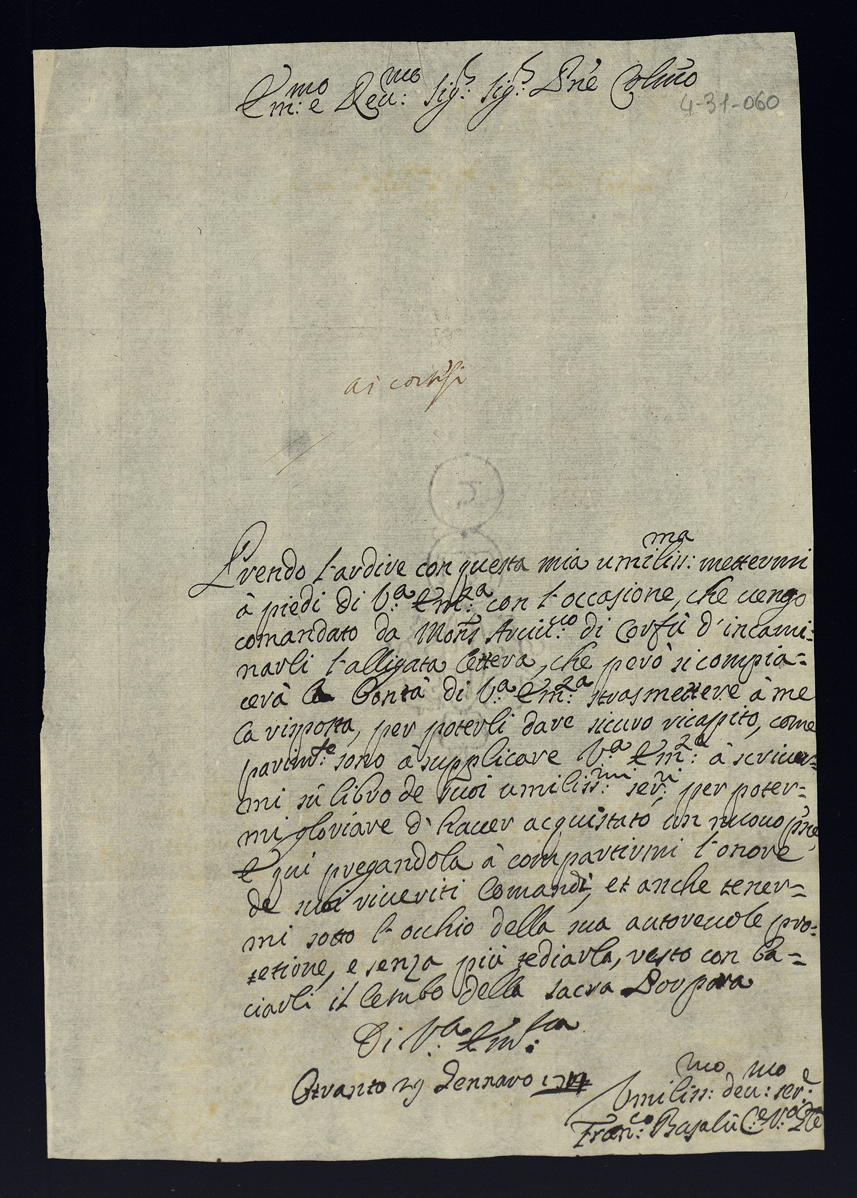 Em:mo e Reu:mo Sig:r Sig:r Pñe Colmo
4-31-060
ai corsi
Prendo l'ardire con questa mia umiliss:ma mettermi
à piedi di V:a Em:za con l'occasione, che uengo
comandato da Mons:r Arciu:co di Corfù d'incami=
narli l'alligata lettera, che però si compia=
cerà la bontà di V:a Em:za trasmettere à me
la risposta, per poterli dare sicuro ricapito, come
parim:te sono à supplicare V:a Em:za à scriuer=
mi sù libro de suoi umiliss:mi ser:ri per poter=
mi gloriare d'hauer acquistato un nuouo pñe,
e qui pregandola à compartirmi l'onore
de suoi riueriti Comandi, et anche tener=
mi sotto l'occhio della sua autoreuole pro=
tetione, e senza più tediarla, resto con ba=
ciarli il lembo della sacra Porpora
Di V:a Em:za
Otranto 29 Gennaro
Umiliss:mo deu:mo ser:e
Fran:co Basalù